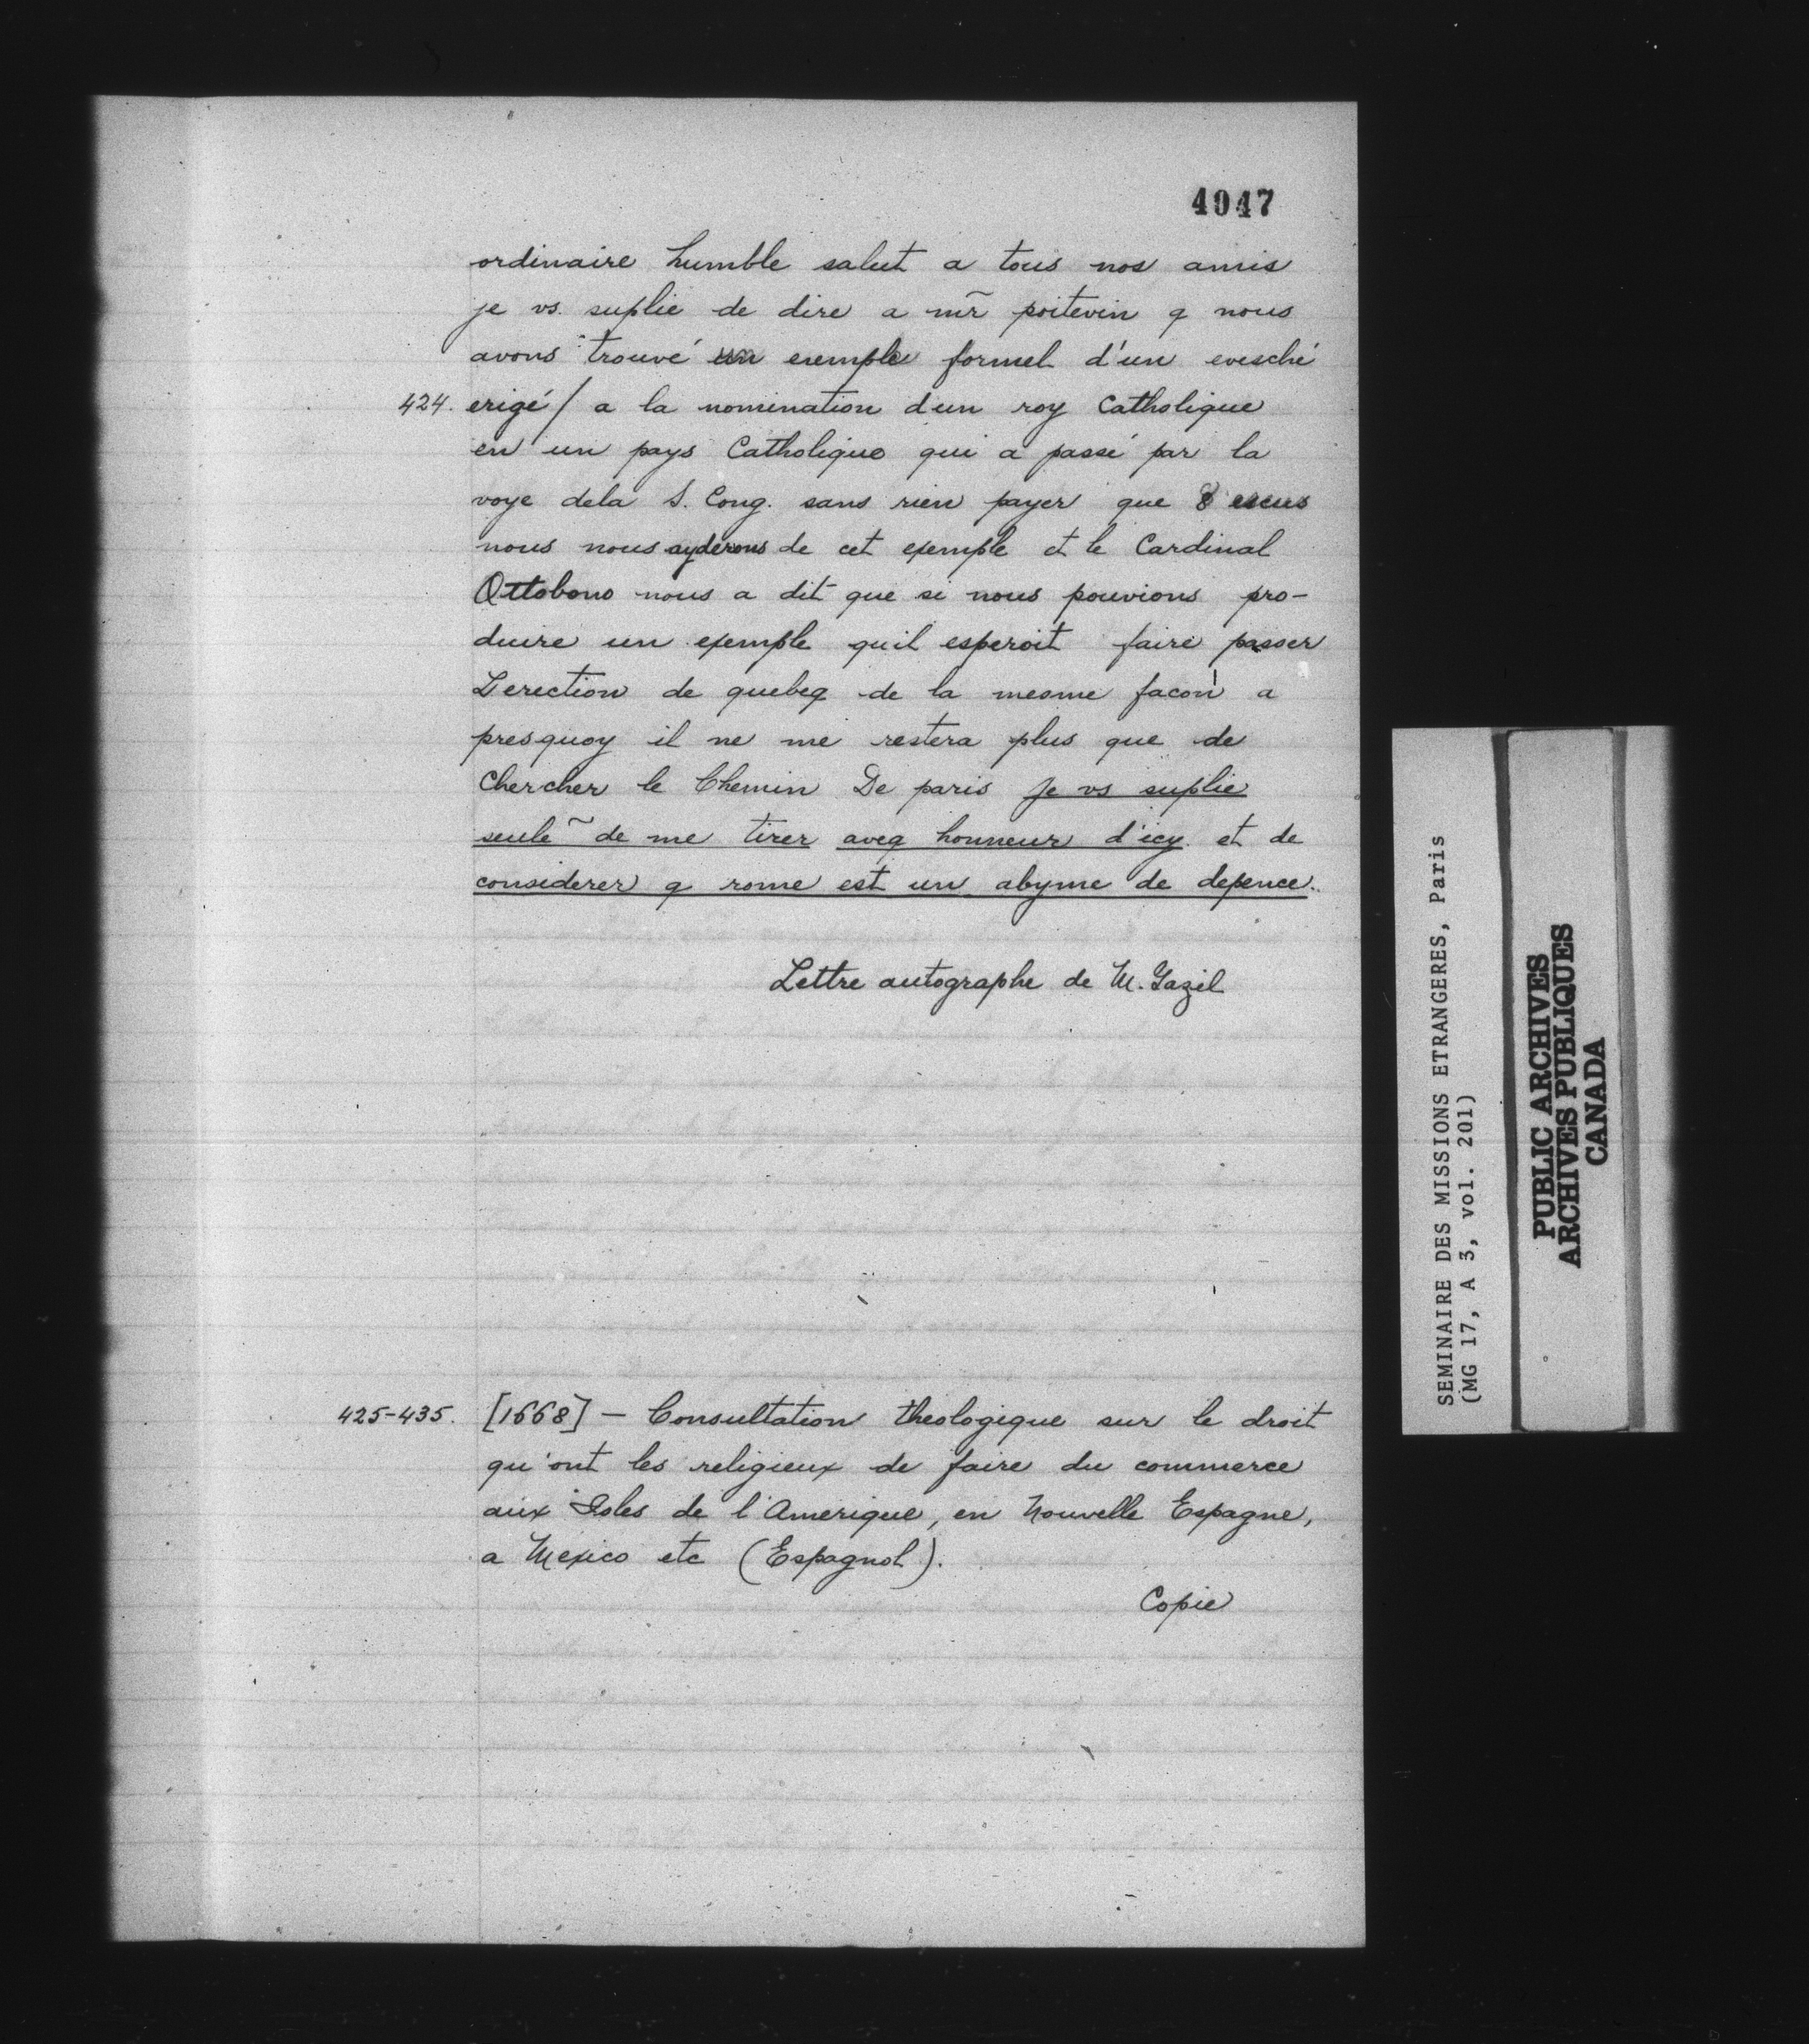 4047
ordinaire humble salut a tous nos amis
je vs. suplie de dire a mr̃ poitevin q nous
avons trouvé un exemple formel d'un evesché
424. erigé / a la nomination d'un roy Catholique
en un pays Catholique qui a passé par la
voye dela S. Cong. sans rien payer que 8 escus
nous nous ayderons de cet exemple et le Cardinal
Ottobono nous a dit que si nous pouvions pro-
duire un exemple quil esperoit faire passer
L'erection de quebeq de la mesme facon a
presquoy il ne me restera plus que de
Chercher le Chemin De paris Je vs suplie
seule ̃ de me tirer aveq honneur d'icy et de
considerer q rome est un abyme de depence.
Lettre autographe de M. Gazil
425-435. [1668] — Consultation theologique sur le droit
qu'ont les religieux de faire du commerce
aux Isles de l'Amerique, en Nouvelle Espagne,
a Mexico etc (Espagnol).
Copie
SEMINAIRE DES MISSIONS ETRANGERES, Paris
(MG 17, A 3, vol. 201)
PUBLIC ARCHIVES
ARCHIVES PUBLIQUES
CANADA